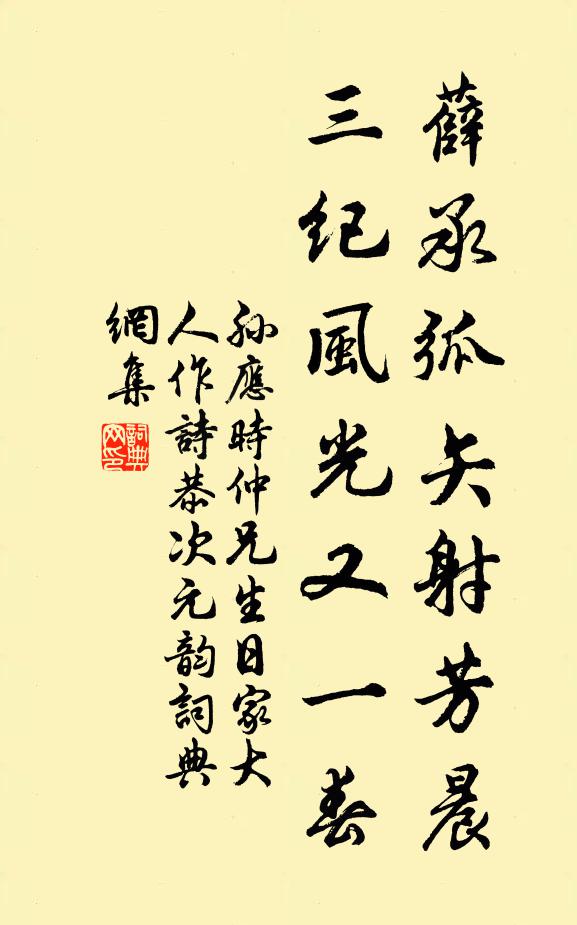 薛承弧矢射芳晨
三紀風光又一春
孫應時仲兄生日家大
人作詩恭次元韵詞典
網集
詞典
网印